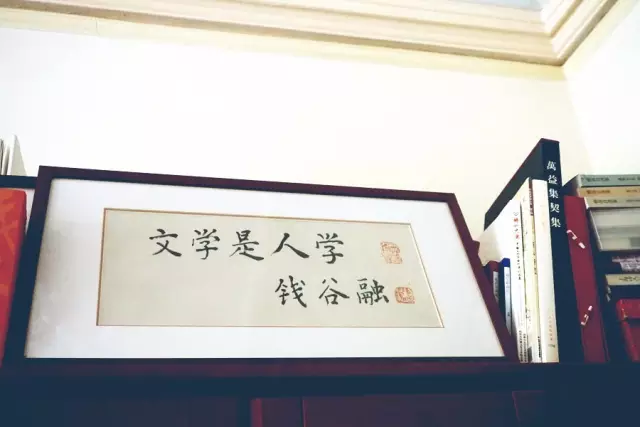 文学是人学
钱谷融
萬益集契集